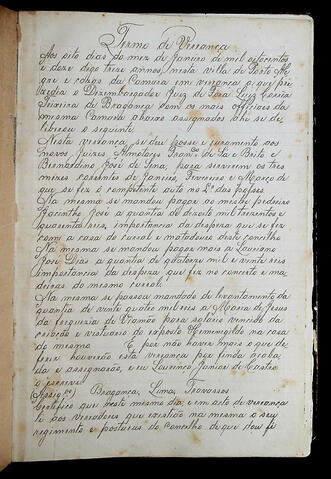 Termo de Vereança
Aos oito dias do mez de Janeiro de mil oitocentos
e doze digo treze annos, nesta villa de Porto Ale
gre e cazas da Camara em vereança que pre
zedio o Dezembargador Juiz de Fora Luiz Corrêa
Teixeira de Bragança com os mais officiaes da
mesma Camara abaixo assignados ahi se de
liberou o seguinte.
Nesta vereança se deu posse e juramento aos
novos Juizes Almotaces Franco. de Sá e Brito e
Bernardino José de Sena, para servirem os tres
mezes correntes de Janeiro, Fevereiro e Março de
que se fez o competente auto no Lo. das posses
Na mesma se mandou pagar ao mestre pedreiro
Jacintho José a quantia de dezoito mil trezentos e
quarenta reis, importancia da despeza que se fez
com a casa do curral e matadouro deste concelho
Na mesma se mandou pagar mais a Lauriano
José Dias a quantia de quatorze mil e vinte reis
importancia da despeza que fez no concerto e ma
deiras do mesmo curral.
Na mesma se passou mandado de levantamento da
quantia de vinte quatro mil reis a Maria de Jesus
da freguezia de Viamão para salario vencido da
creação e vestuario do exposto Hermenegildo na casa
do mesmo. E por não haver mais o que de
ferir houverão esta vereança por finda e acaba
da e assignarão, eu Lourenço Junior de Castro
o escrevi
(Assigos) Bragança, Lima, Travassos
Certifico que neste mesmo dia e em acto de vereança
li aos vereadores que existião na mesma o seu
regimento e posturas do concelho de que dou fé